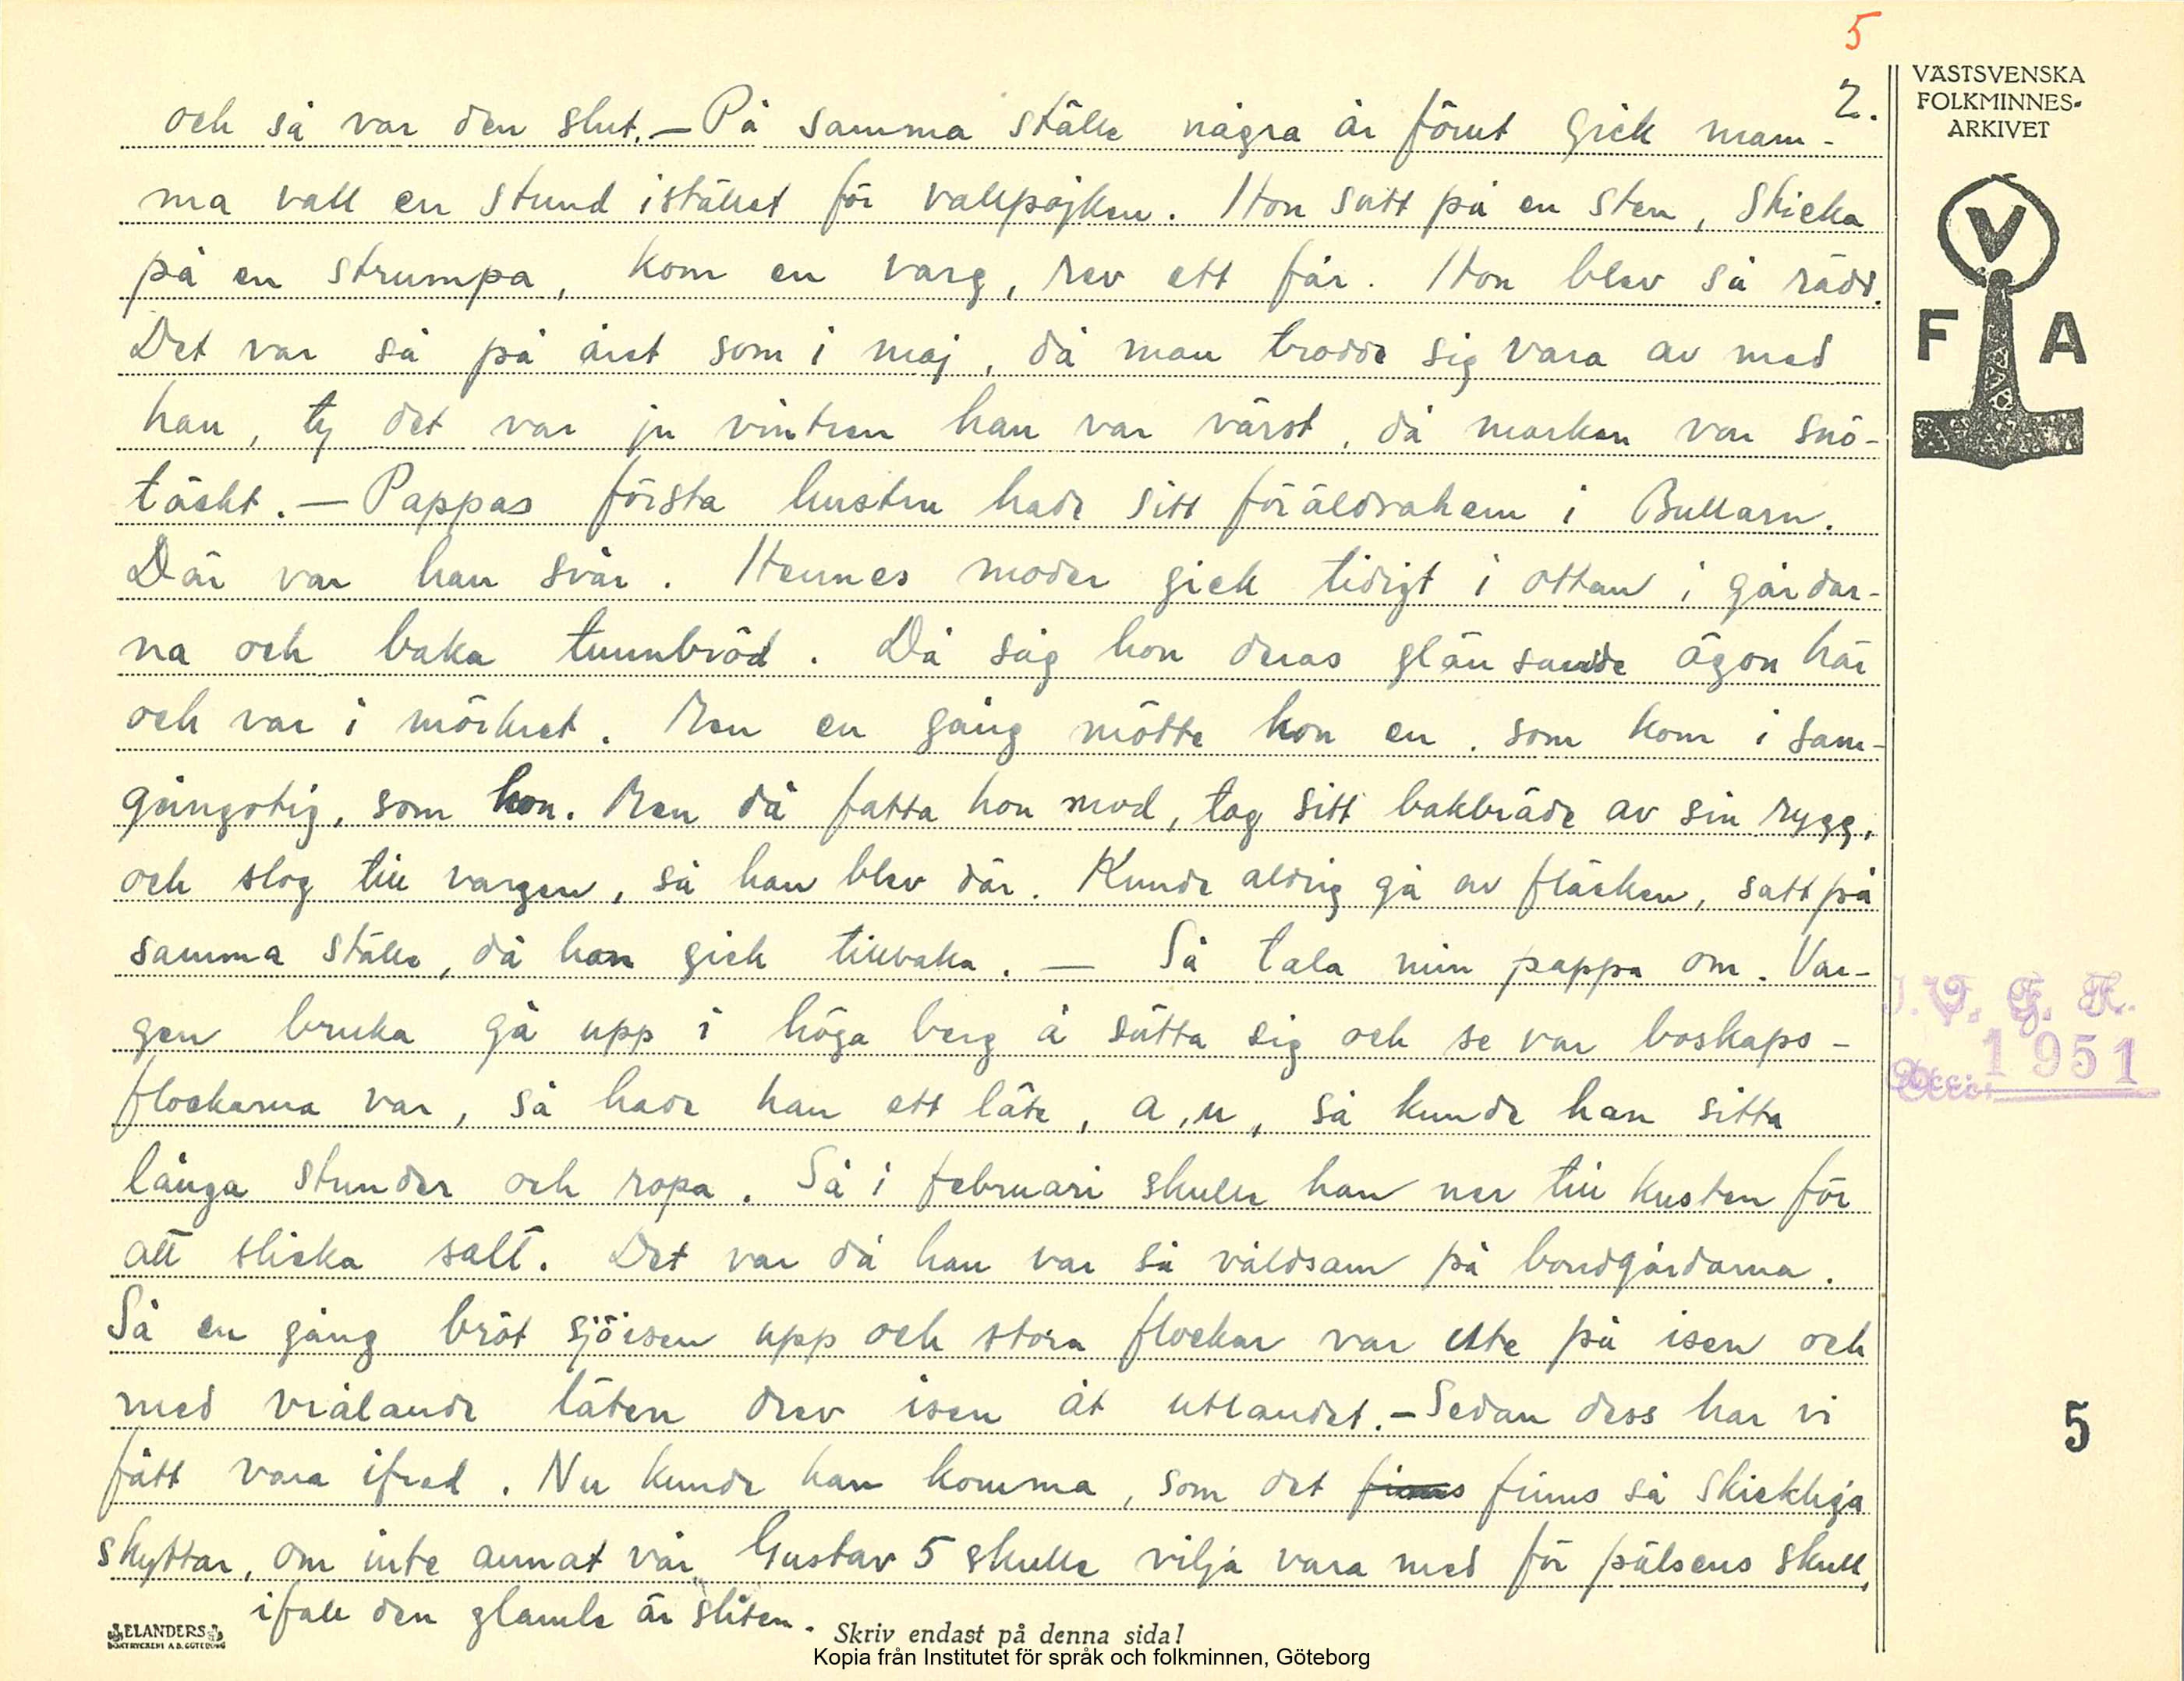 5
2.
VÄSTSVENSKA
FOLKMINNES-
ARKIVET
V
F A
och så var den slut. – På samma ställe några år förut gick mam-
ma vall en stund istället för vallpojken. Hon satt på en sten, sticka
på en strumpa, kom en varg, rev ett får. Hon blev så rädd.
Det var så på året som i maj, då man trodde sig vara av med
han, ty det var ju vintren han var värst, då marken var snö-
täckt. – Pappas första hustru hade sitt föräldrahem i Bullarn.
Där var han svår. Hennes moder gick tidigt i ottan i gårdar-
na och baka tunnbröd. Då såg hon deras glänsande ögon här
och var i mörkret. Men en gång mötte hon en, som kom i sam-
gångstig, som hon. Men då fatta hon mod, tog sitt bakbräde av sin rygg,
och slog till vargen, så han blev där. Kunde aldrig gå av fläcken, satt på
samma ställe, då hon gick tillbaka. – Så tala min pappa om. Var-
gen bruka gå upp i höga berg å sätta sig och se var boskaps-
flockarna var, så hade han ett läte, a, u, så kunde han sitta
långa stunder och ropa. Så i februari skulle han ner till kusten för
att slicka salt. Det var då han var så våldsam på bondgårdarna.
Så en gång bröt sjöisen upp och stora flockar var ute på isen och
med vrålande läten drev isen åt utlandet. – Sedan dess har vi
fått vara ifred. Nu kunde han komma, som det finns finns så skickliga
skyttar, om inte annat vår Gustav 5 skulle vilja vara med för pälsens skull,
ifall den glamle är sliten.
I. V. G. R.
Acc: 1951
5
ELANDERS
BOKTRYCKERI A.B. GÖTEBORG
Skriv endast på denna sida!
Kopia från Institutet för språk och folkminnen, Göteborg